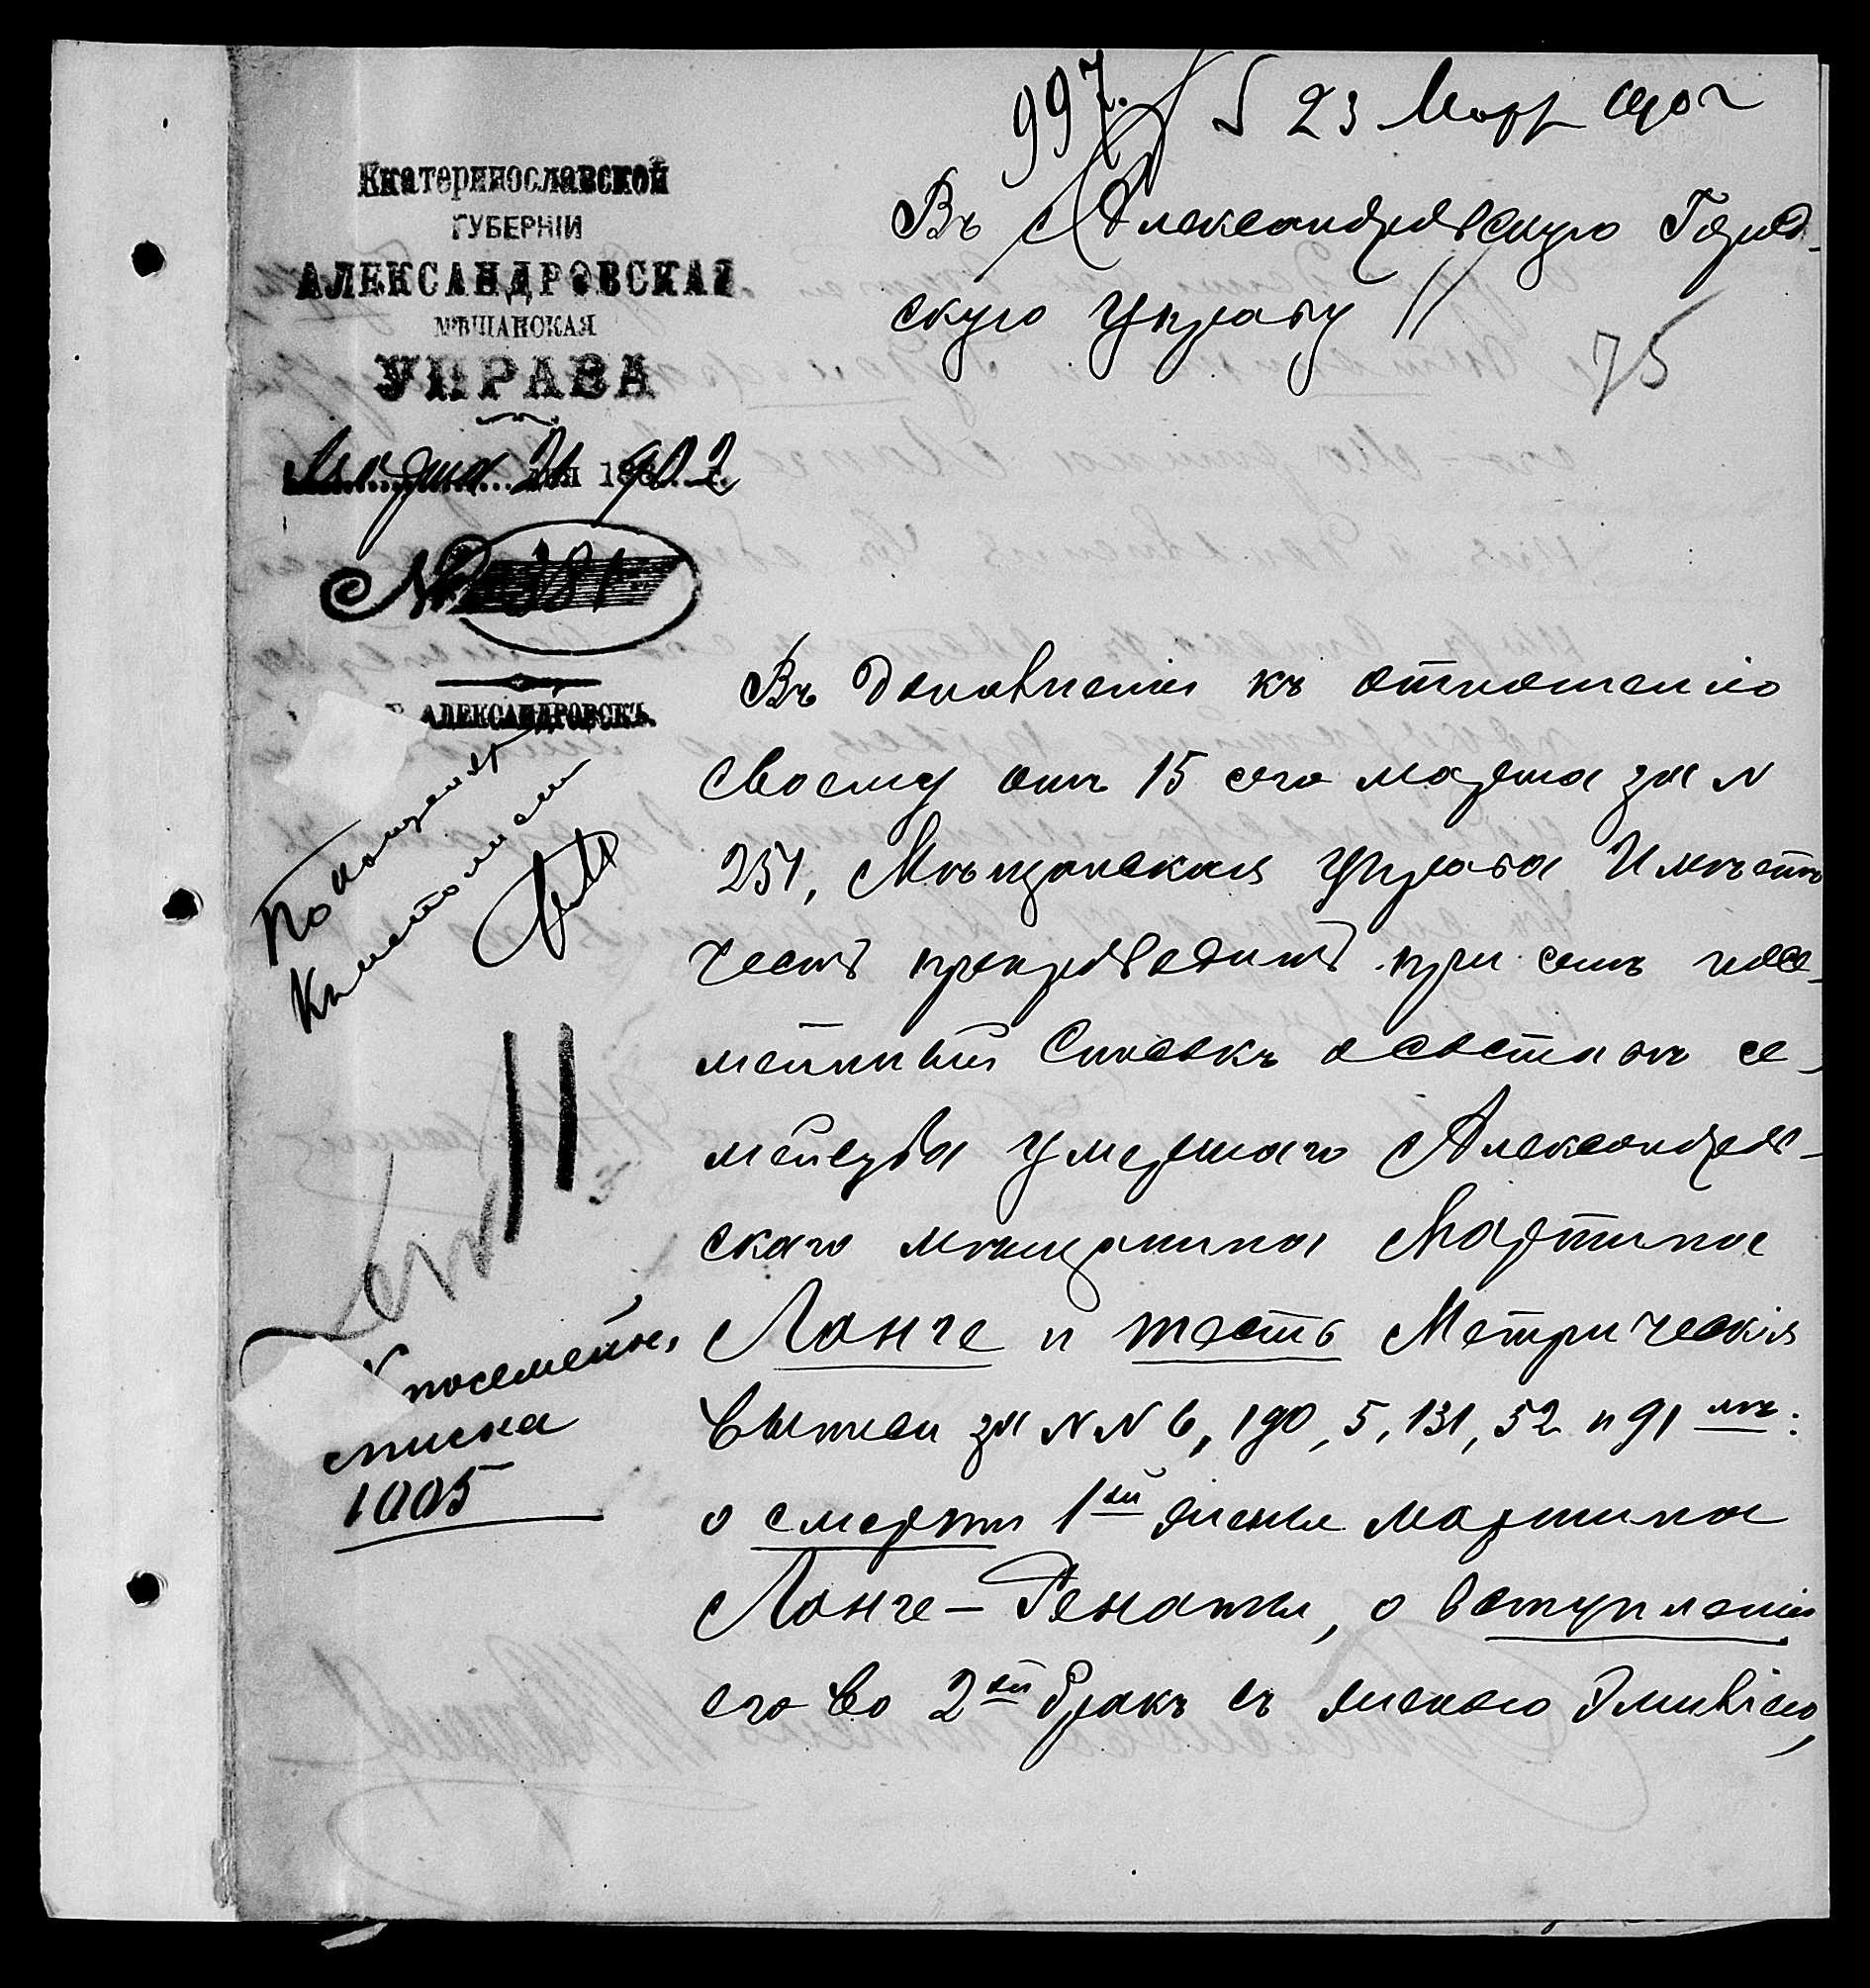 997.
23 Мар 1902
Екатеринославской
ГУБЕРНІИ
АЛЕКСАНДРОВСКАЯ
МѢЩАНСКАЯ
УПРАВА
Марта 21 дня 1902
№ 381
Г. АЛЕКСАНДРОВСКЪ.
Въ Александровскую Город-
скую Управу
75
Въ дополненіи къ отношенію
своему отъ 15 сего марта за №
251, Мѣщанская Управа Имѣетъ
честь препроводить при семъ посе-
мейный Списокъ о составѣ се-
мейства умершаго Александров-
скаго мѣщанина Мартина
Ланге и шесть Метрическія
выписи за №№ 6, 190, 5, 131, 52 и 91
о смерти 1ой жены Мартина
Ланге – Ренаты, о вступленіи
его во 2ой бракъ съ женою Эмиліею,
посемейн.
списка
1005